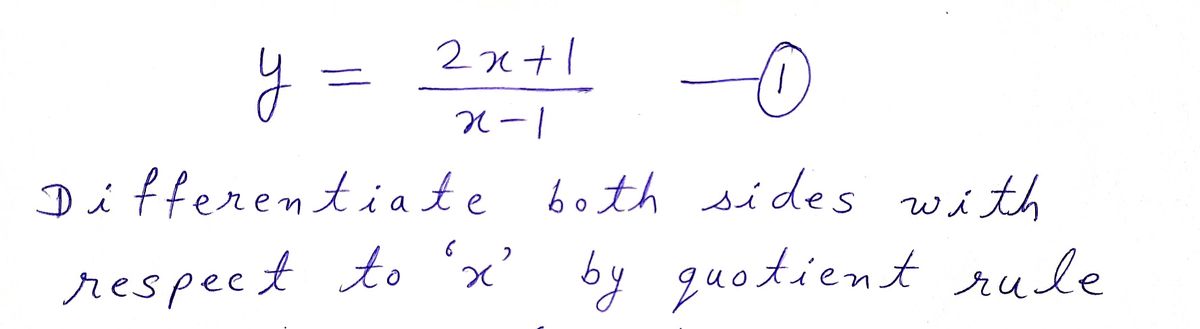 y = (2x+1)/(x-1) —①
Differentiate both sides with
respect to 'x' by quotient rule